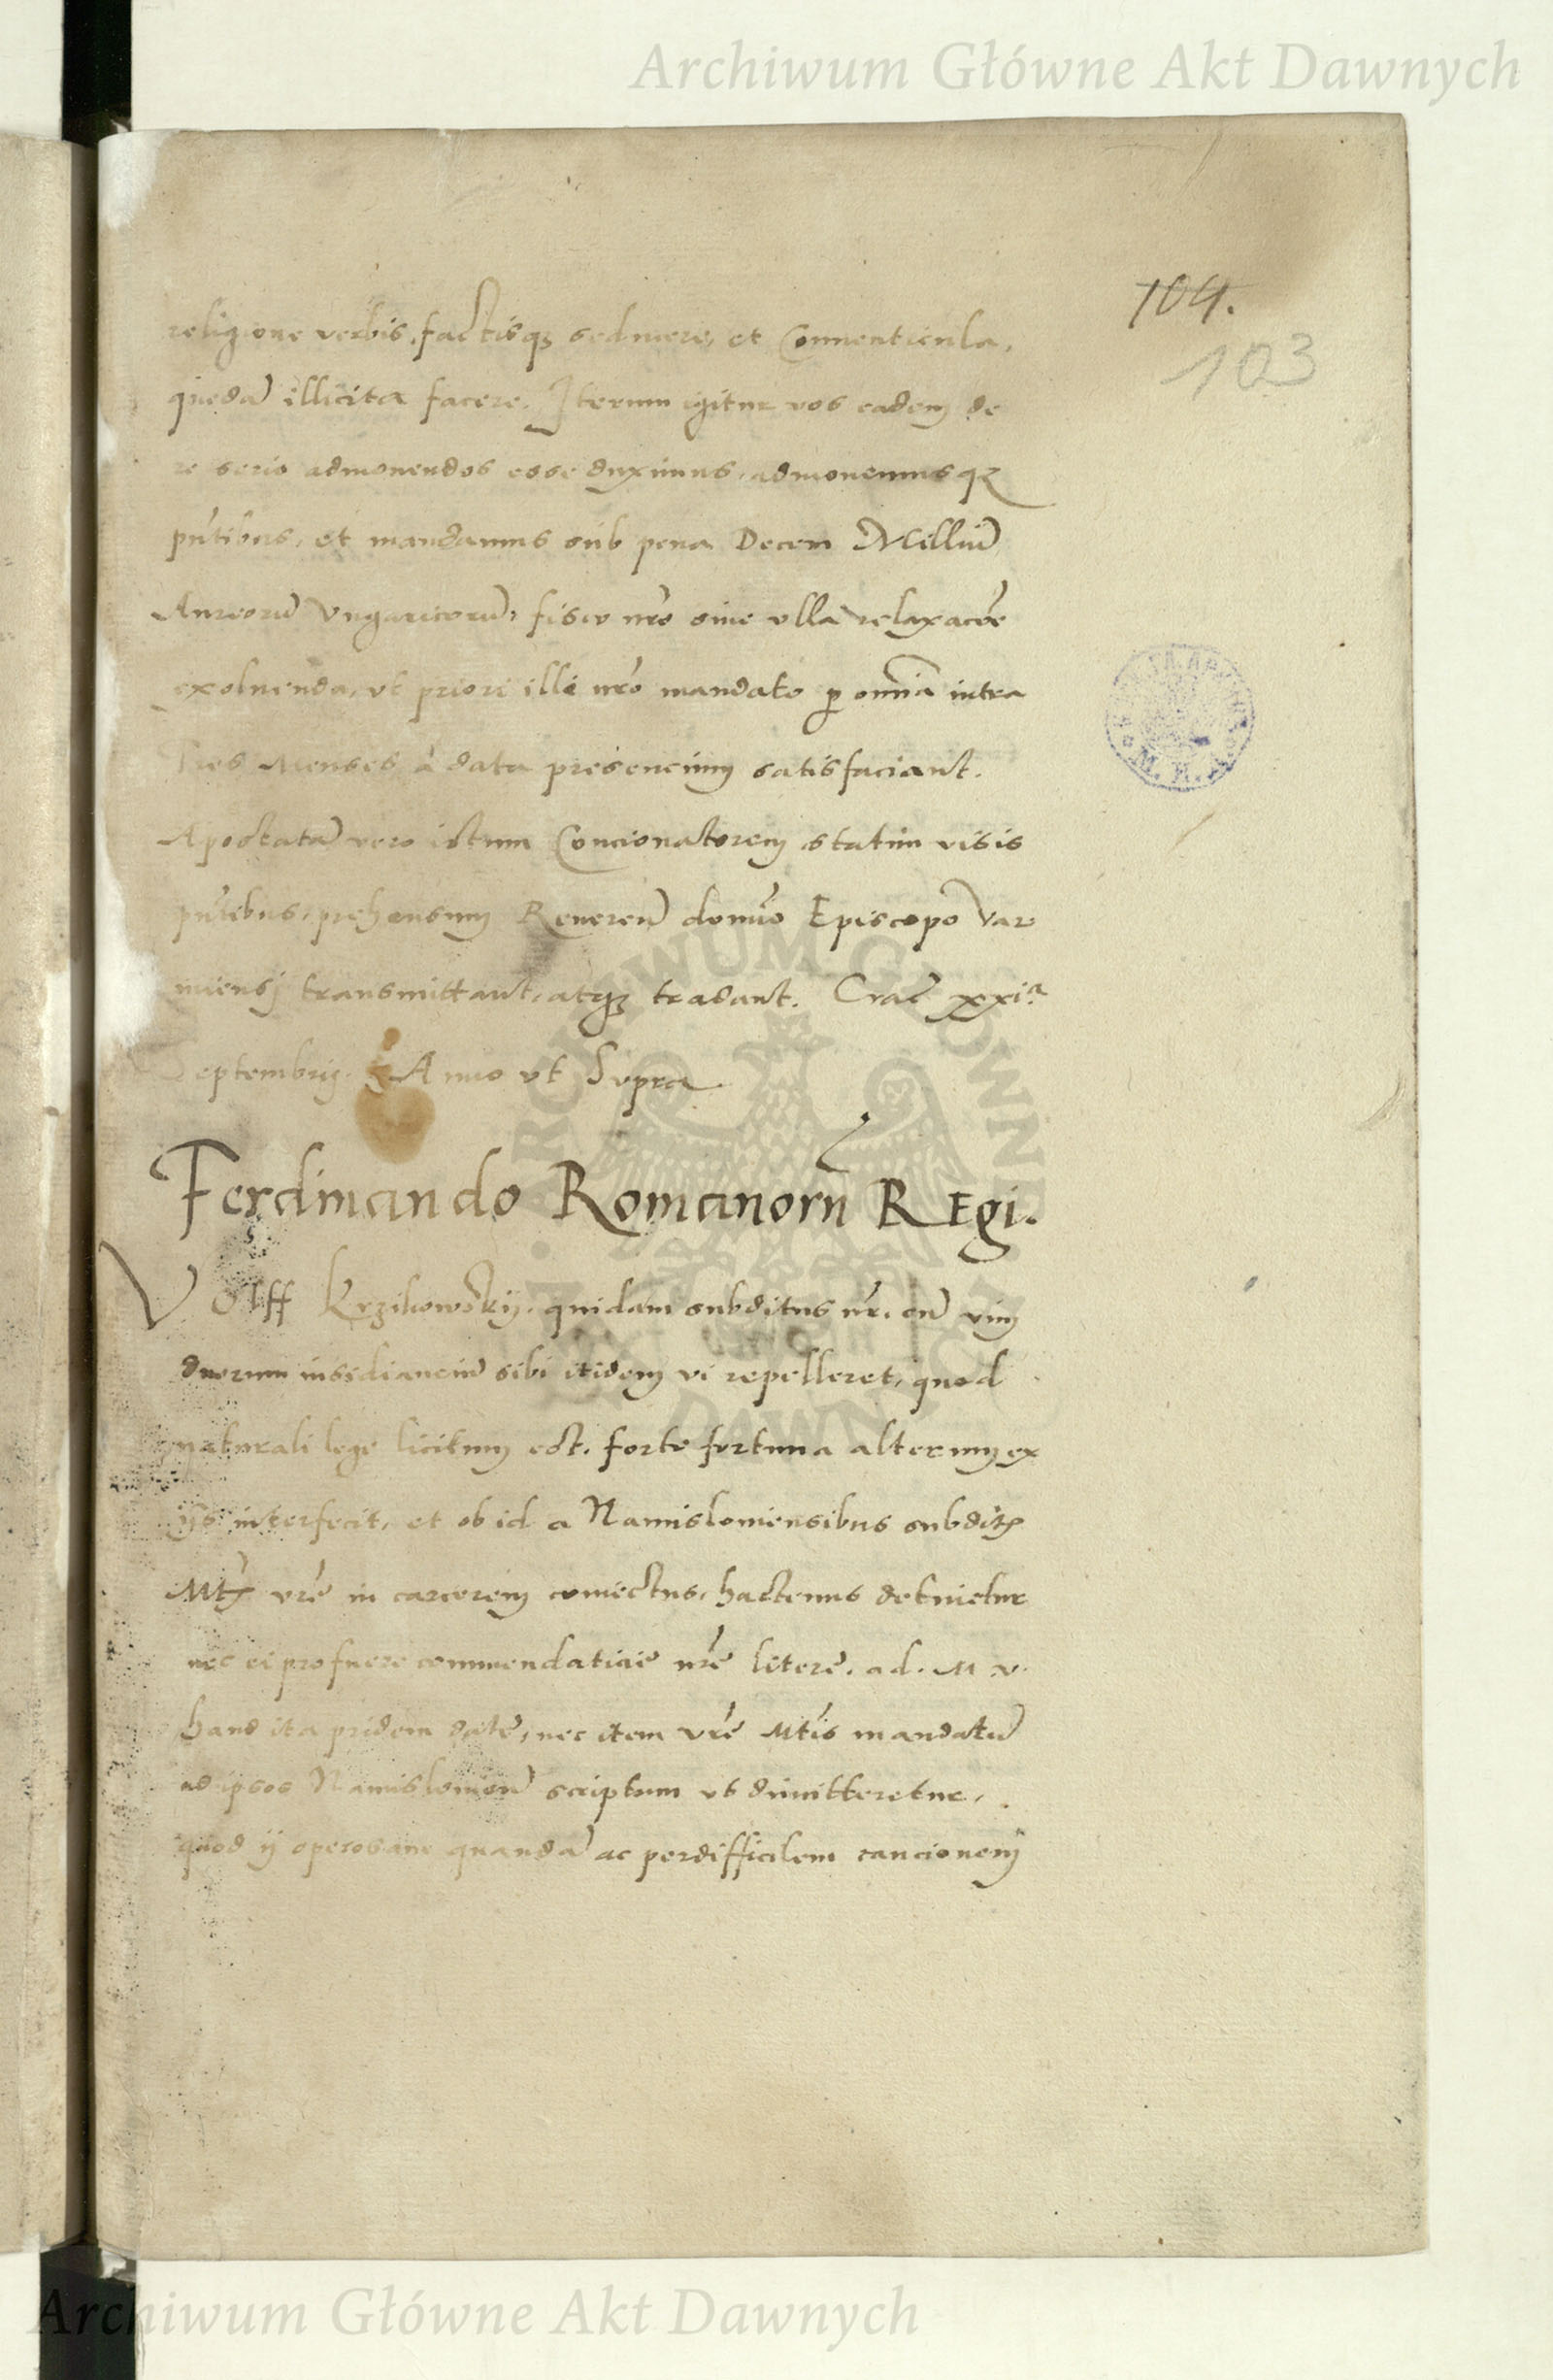 Archiwum Główne Akt Dawnych
104.
103
religione verbis, factisqȝ seducere, et Conuenticula,
quedā illicita facere. Iterum igitur vos eadem de
re serio admonendos esse duximus, admonemusqȝ
pn̄tibus, et mandamus sub pena Decem Milliū
Aureorū Vngaricorū, fisco nr̄o sine vlla relaxacōe
exoluenda, vt priori illi nr̄o mandato ꝑ omnia intra
Tres Menses a data presencium satisfaciant.
Apostatā vero istum Concionatorem statim visis
pn̄tibus, prehensum Reuereñ domīo Episcopo Var
miensj transmittant, atqȝ tradant. Crac̄ xxiᵃ
Septembrij. Anno vt Supra
Ferdinando Romanorū REgi.
VOlff Krzikowskij, quidam subditus nr̄, cū vim
duorum insidianciū sibi itidem vi repelleret, quod
naturali lege licitum est, forte fortuna alterum ex
ijs interfecit, et ob id a Namislouiensibus subditꝭ
Mtꝭ vr̄e in carcerem coniectus, hactenus detinetur
nec ei profuere commendaticie nr̄e litere. ad. M v.
haud ita pridem datę, nec item vr̄e Mtīs mandatū
ad ipsos Namislouieñ scriptum vt dimitteretur,
quod ij operosam quandā ac perdifficilem caucionem
M. K.
ARCHIWUM GŁÓWNE AKT DAWNYCH
Archiwum Główne Akt Dawnych